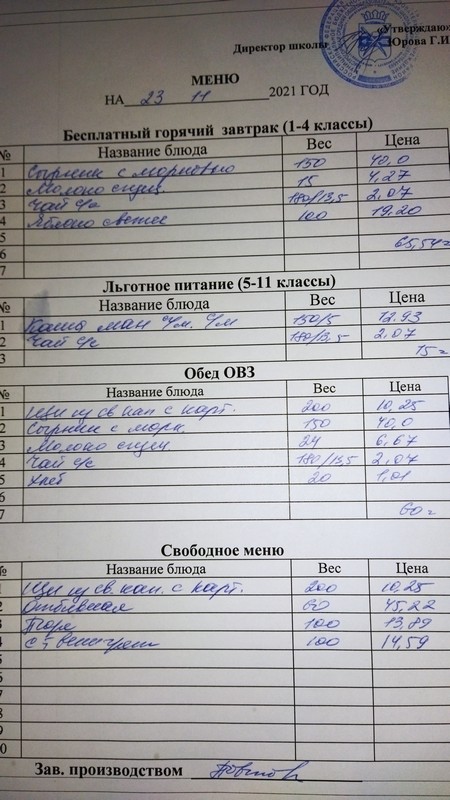 «Утверждаю»
Директор школы Юрова Г.И
МЕНЮ
НА 23 11 2021 ГОД
Бесплатный горячий завтрак (1-4 классы)
№ Название блюда Вес Цена
1 Сырник с морковью 150 40,0
2 Молоко сгущ 15 4,27
3 Чай с/с 180/13,5 2,07
4 Яблоко свежее 100 19,20
5 65,54=
6
7
Льготное питание (5-11 классы)
№ Название блюда Вес Цена
1 Каша ман с/м. с/м 150/5 12,93
2 Чай с/с 180/13,5 2,07
3 15=
Обед ОВЗ
№ Название блюда Вес Цена
1 Щи из св кап с карт. 200 10,25
2 Сырник с морк. 150 40,0
3 Молоко сгущ 24 6,67
4 Чай с/с 180/13,5 2,07
5 Хлеб 20 1,01
6
7 60=
Свободное меню
№ Название блюда Вес Цена
1 Щи из св. кап. с карт. 200 10,25
2 Отбивная 60 45,22
3 Пюре 100 13,89
4 100 14,59
5
6
7
8
9
0
Зав. производством